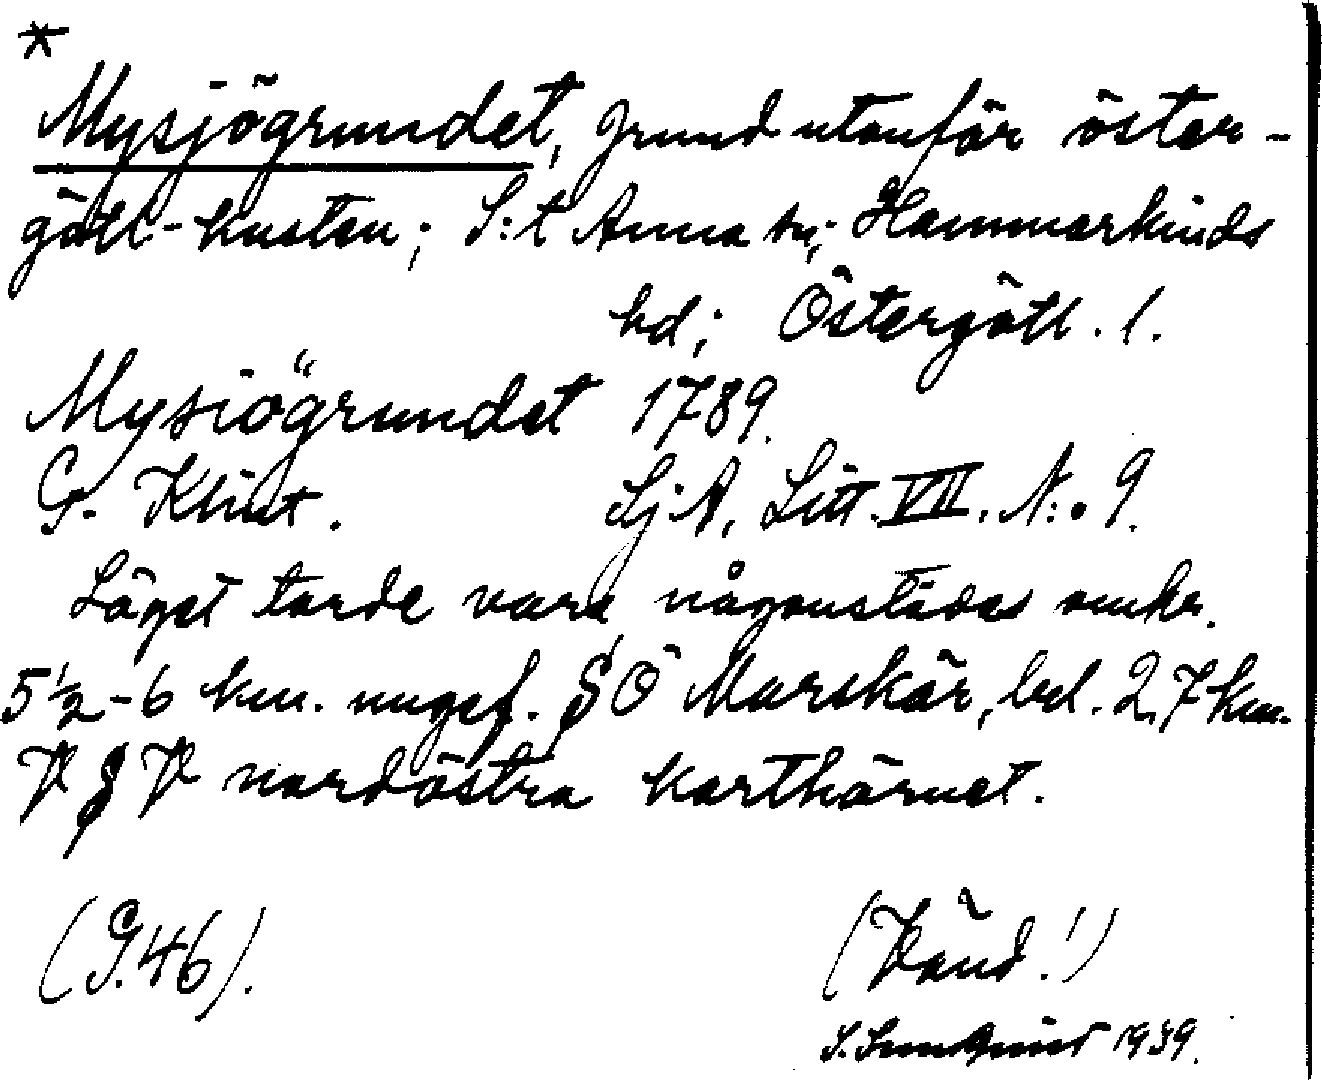 *
Mysjögrundet, grund utanför öster-
götl-kusten; S:t Anna sn; Hammarkinds
hd; Östergötl. l.
Mysiögrundet 1789.
G. Klint. SjA, Litt. VII. N:o 9.
Läget torde vara någonstädes omkr.
5½-6 km. ungef. SÖ Marskär, bel. 2,7 km.
VSV nordöstra karthörnet.
(G.46). (Vänd!)
S. Sundqvist 1939.